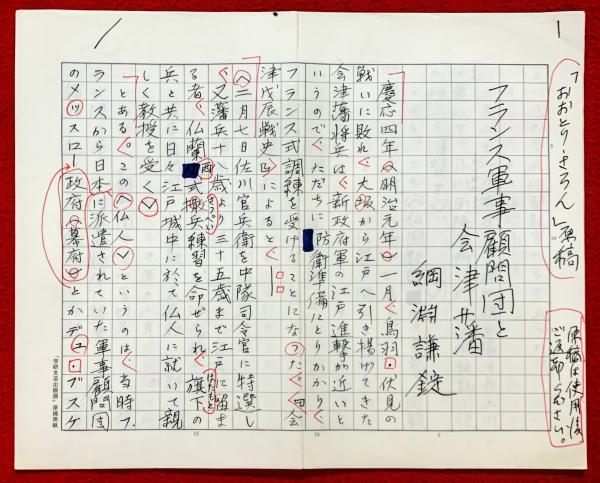 1
「おおとり・さろん」原稿
原稿は使用後
ご返却ください。
フランス軍事顧問団と
会津藩
綱淵謙錠
慶応四年(明治元年)一月、鳥羽・伏見の
戦いに敗れ、大坂から江戸へ引き揚げてきた
会津藩将兵は、新政府軍の江戸進撃が近いと
いうので、ただちに防衛準備にとりかかり、
フランス式調練を受けることになった。『会
津戊辰戦史』によると、
〈二月七日佐川官兵衛を中隊司令官に特選し
、又藩兵十八歳より三十五歳まで江戸に留ま
る者、仏蘭西式撒兵練習を命ぜられ、旗下の
さっぺい
はたもと
兵と共に日々江戸城中に於て仏人に就いて親
しく教授を受く〉
とある。この〈仏人〉というのは、当時フ
ランスから日本に派遣されていた軍事顧問団
のメッスロー
政府(幕府)
とかデュ・ブスケ
「学研文芸出版部」原稿用紙